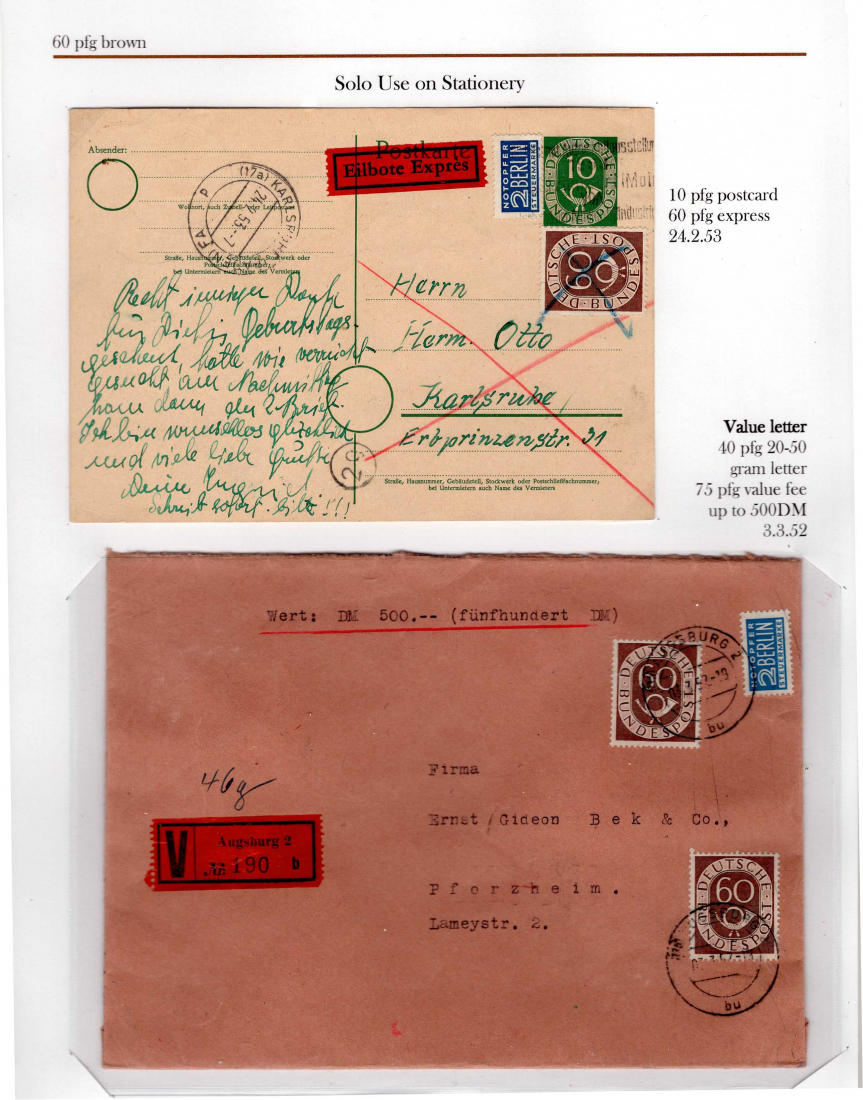 60 pfg brown
Solo Use on Stationery
Absender:
Postkarte
Eilbote Exprès
NOTOPFER
2 BERLIN
STEUERMARKE
DEUTSCHE
10
BUNDESPOST
(17a) KARLSRUHE
24.2.53.-7
P
Wohnort, auch Zustell- oder Leitpostamt
Straße, Hausnummer, Gebäudeteil, Stockwerk oder
Postschließfachnummer;
bei Untermietern auch Name des Vermieters
DEUTSCHE
60
BUNDESPOST
10 pfg postcard
60 pfg express
24.2.53
Recht inniger Dank
für Dich, Geburtstags-
geschenk, hatte wie verrückt
gesucht, am Nachmittag
kam dann der 2. Brief.
Ich bin wunschlos glücklich
und viele liebe Grüße
Deine
Schreib sofort. bitte!!!
Herrn
Herm. Otto
Karlsruhe,
Erbprinzenstr. 31
29
Straße, Hausnummer, Gebäudeteil, Stockwerk oder Postschließfachnummer;
bei Untermietern auch Name des Vermieters
Value letter
40 pfg 20-50
gram letter
75 pfg value fee
up to 500DM
3.3.52
Wert: DM 500.-- (fünfhundert DM)
DEUTSCHE
60
BUNDESPOST
SBURG 2
bu
NOTOPFER
2 BERLIN
STEUERMARKE
46g
V
Augsburg 2
№ 190 b
Firma
Ernst/Gideon Bek & Co.,
Pforzheim.
Lameystr. 2.
DEUTSCHE
60
BUNDESPOST
bu